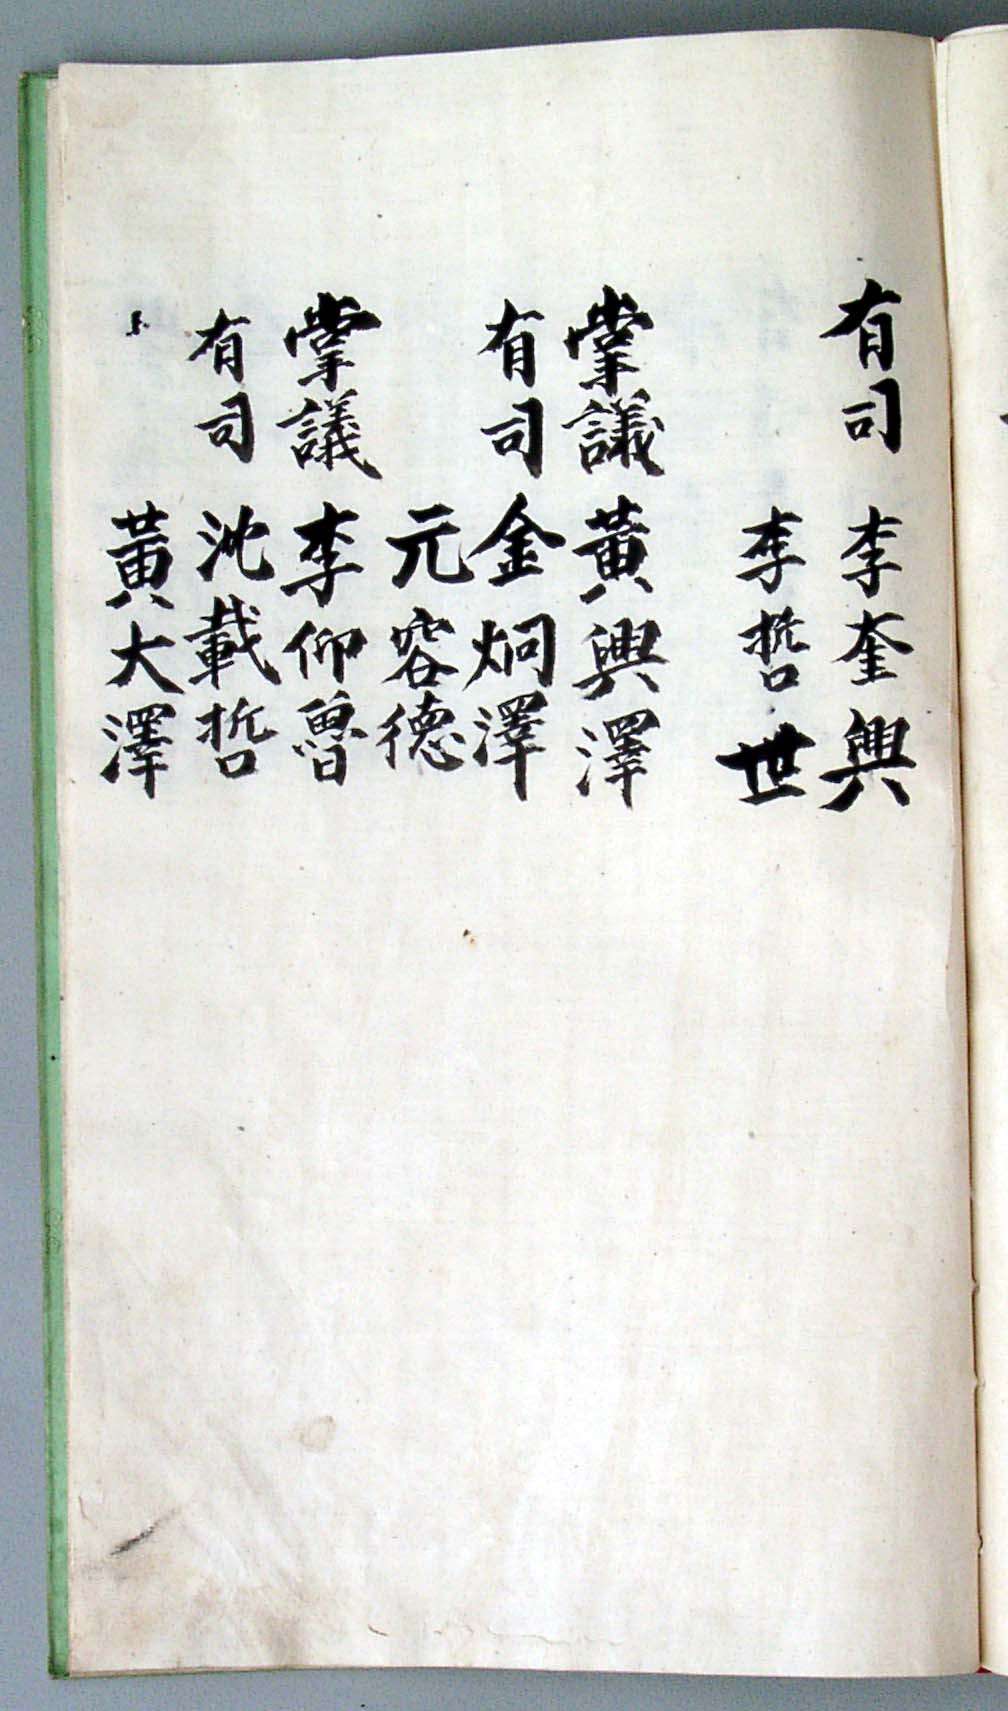 有司 李奎興
李哲世
掌議 黃興澤
有司 金炯澤
元容德
掌議 李仰魯
有司 沈載哲
黃大澤